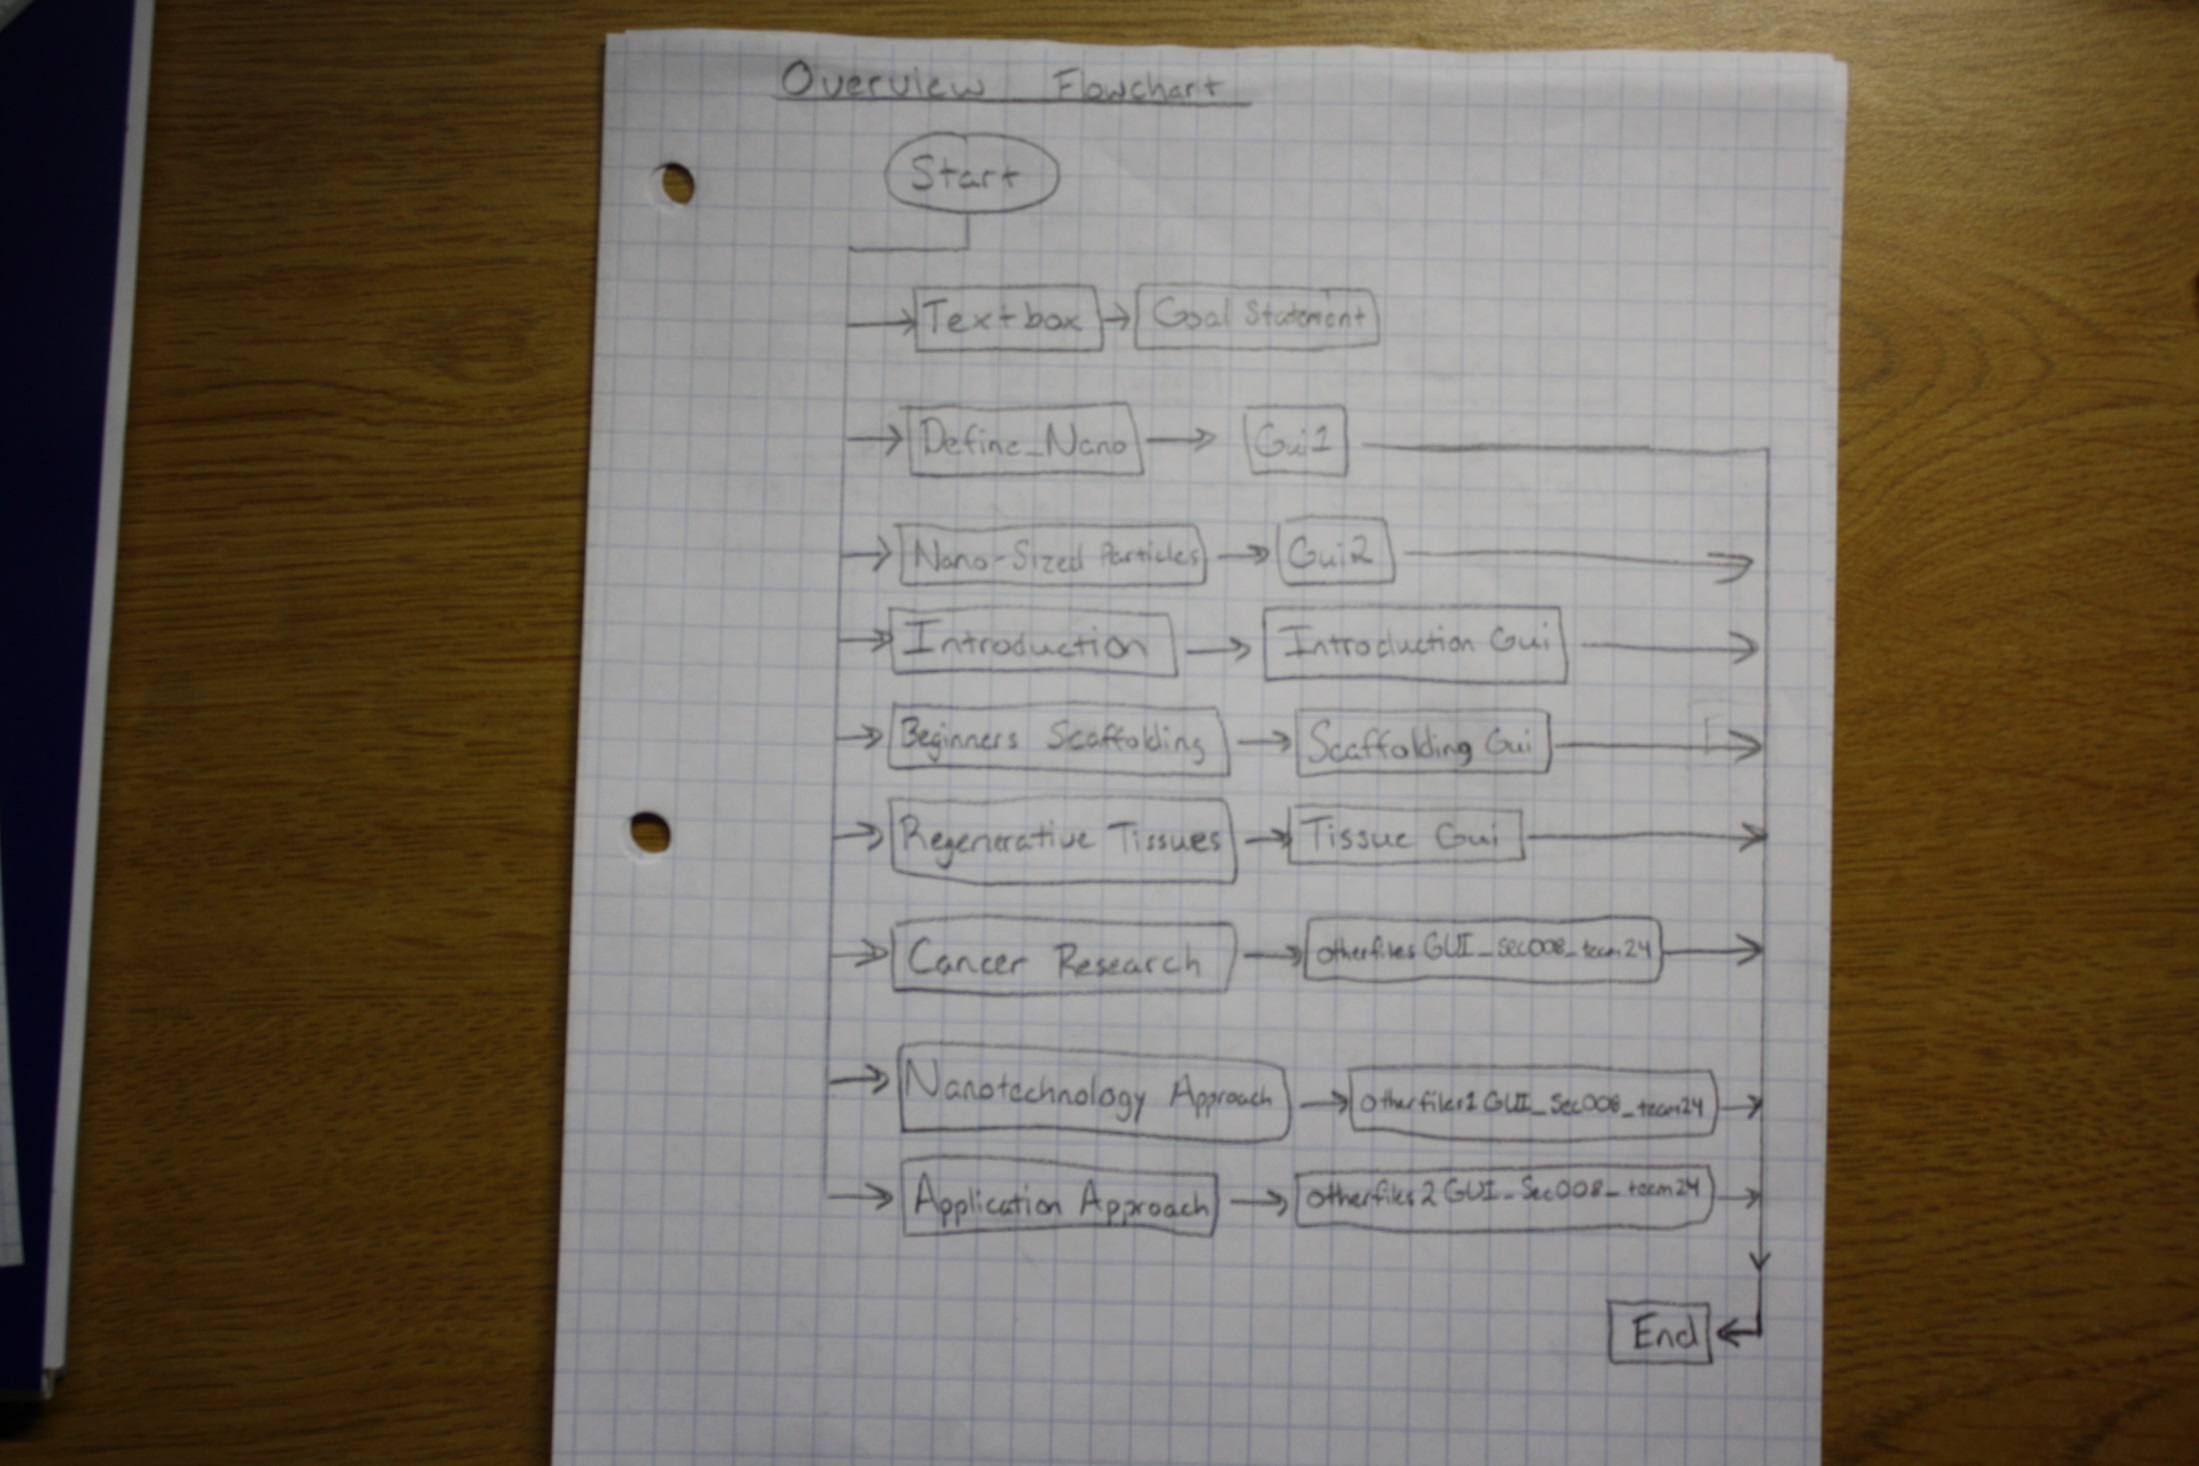 Overview Flowchart
Start
Textbox Goal Statement
Define_Nano Gui1
Nano-Sized Particles Gui2
Introduction Introduction Gui
Beginners Scaffolding Scaffolding Gui
Regenerative Tissues Tissue Gui
Cancer Research otherfiles GUI_sec008_team24
Nanotechnology Approach otherfiles1 GUI_Sec008_team24
Application Approach otherfiles2 GUI_Sec008_team24
End